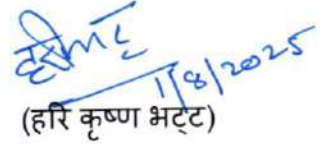 1/8/2025
(हरि कृष्ण भट्ट)